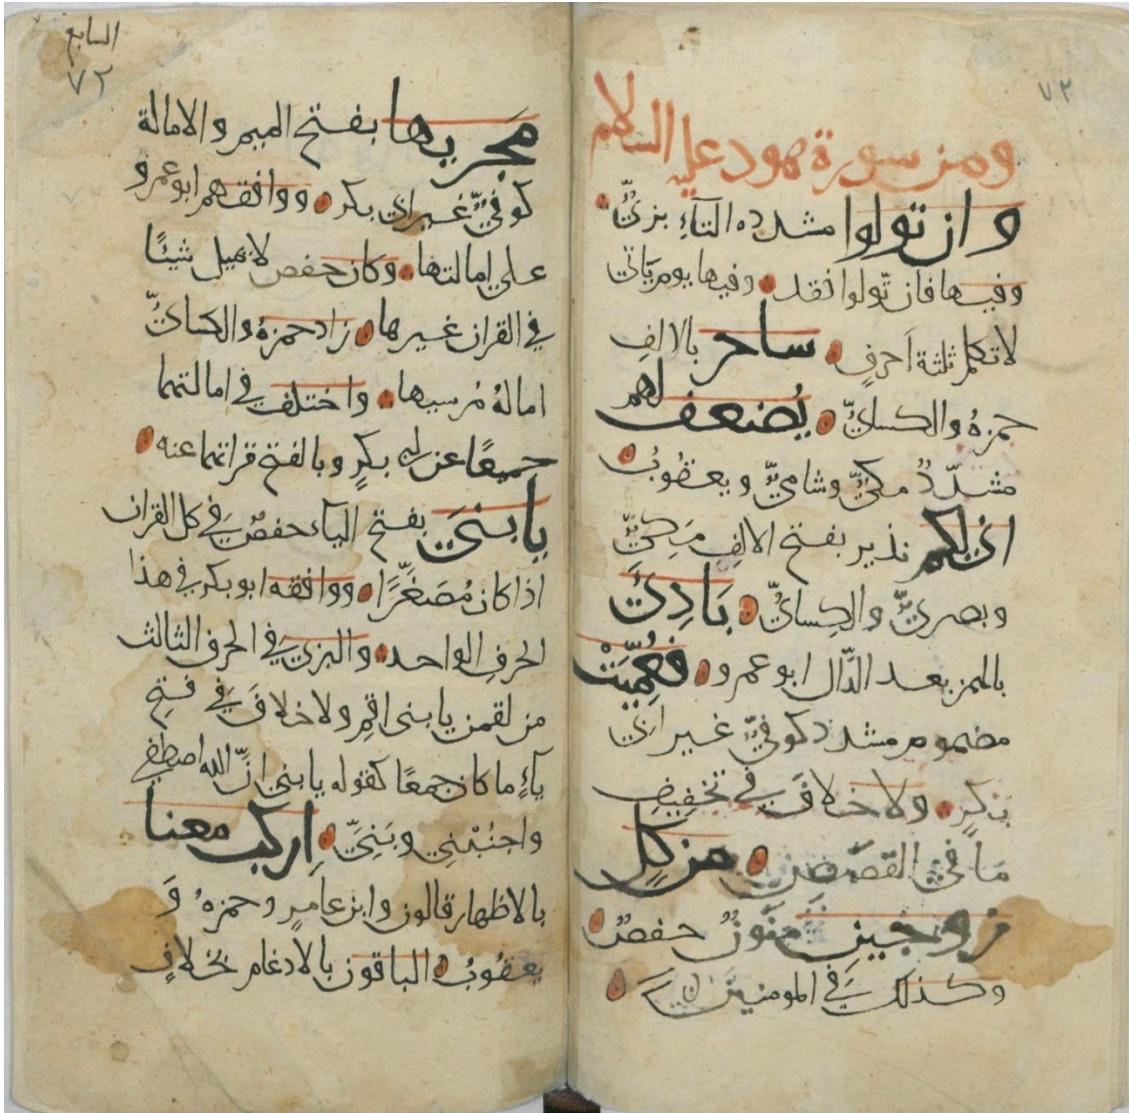 ٧٢
ومن سورة هود عليه السلام
وان تولوا مشدده التآءِ بزيٌّ
وفيها فان تّولوا فقد وفيها يوم ياتي
لا تكلم ثلثة اَحرفٍ ساحر بالالفِ
حمزهُ والكسايُّ يُضعف لهم
مشدّدٌ مكيٌّ وشاميٌّ ويعقوبُ
اني لكم نذير بفتح الالفِ مَكيٌّ
وبصريٌّ والكِسايُّ بَادِئَ
بالهمز بعد الدّال ابو عمرو فعُمِّيَتْ
مضموم مشدد كوفيٌّ غير ابي
بكرٍ ولا خلافَ في تخفِيفِ
مَا في القَصَصِ من كلٍ
زوجين منونٌ حفصٌ
وكذلك في المومنين
السابع
٧٢
مَجريها بفتح الميم والامالة
كوفيٌّ غير ابي بكر ووافقهم ابو عمرو
على امالتها وكان حفص لا يميل شيئًا
في القران غيرها زاد حمزهُ والكسايُّ
امالهُ مُرسيها واختلف في امالتهما
جميعًا عن ابي بكرٍ وبالفتح قراتهما عنه
يابنيَ بفتح اليآء حفصٌ في كل القران
اذا كان مُصَغَّرًا ووافقه ابو بكر في هذا
الحرفِ الواحد والبزي في الحرف الثالث
من لقمن يا بنى اقم ولا خلافَ في فتحِ
يآءِ ما كان جمعًا كقوله يا بني انّ الله اصطفى
واجنُبْني وبَنِيَّ اِركب معنا
بالاظهار قالون وابن عامرٍ وحمزهُ وَ
يعقوبُ الباقون بالادغام بخلافٍ